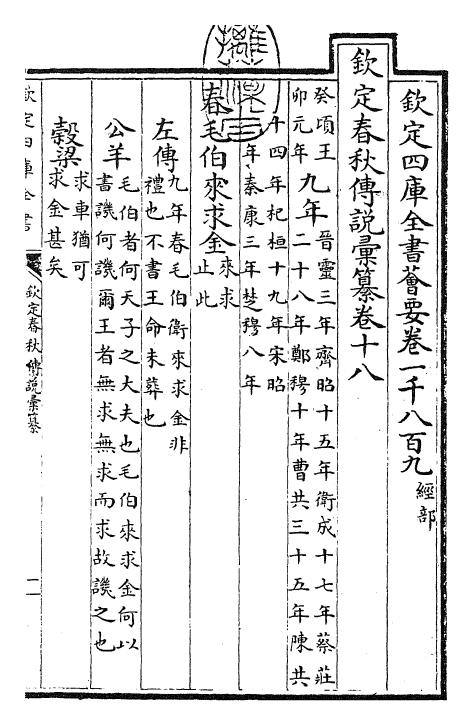 欽定四庫全書薈要卷一千八百九 經部
欽定春秋傳說彙纂卷十八
癸頃王
卯元年
九年
晉靈三年齊昭十五年衛成十七年蔡莊
二十八年鄭穆十年曹共三十五年陳共
十四年杞桓十九年宋昭
年秦康三年楚穆八年
春毛伯來求金 來求
止此
左傳 九年春毛伯衛來求金非
禮也不書王命未葬也
公羊 毛伯者何天子之大夫也毛伯來求金何以
書譏何譏爾王者無求無求而求故譏之也
穀梁 求車猶可
求金甚矣
欽定四庫全書
欽定春秋傳說彙纂
一